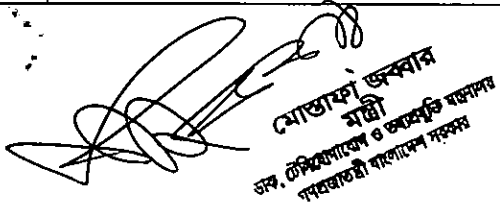 মোস্তাফা জব্বার
মন্ত্রী
ডাক, টেলিযোগাযোগ ও তথ্যপ্রযুক্তি মন্ত্রণালয়
গণপ্রজাতন্ত্রী বাংলাদেশ সরকার